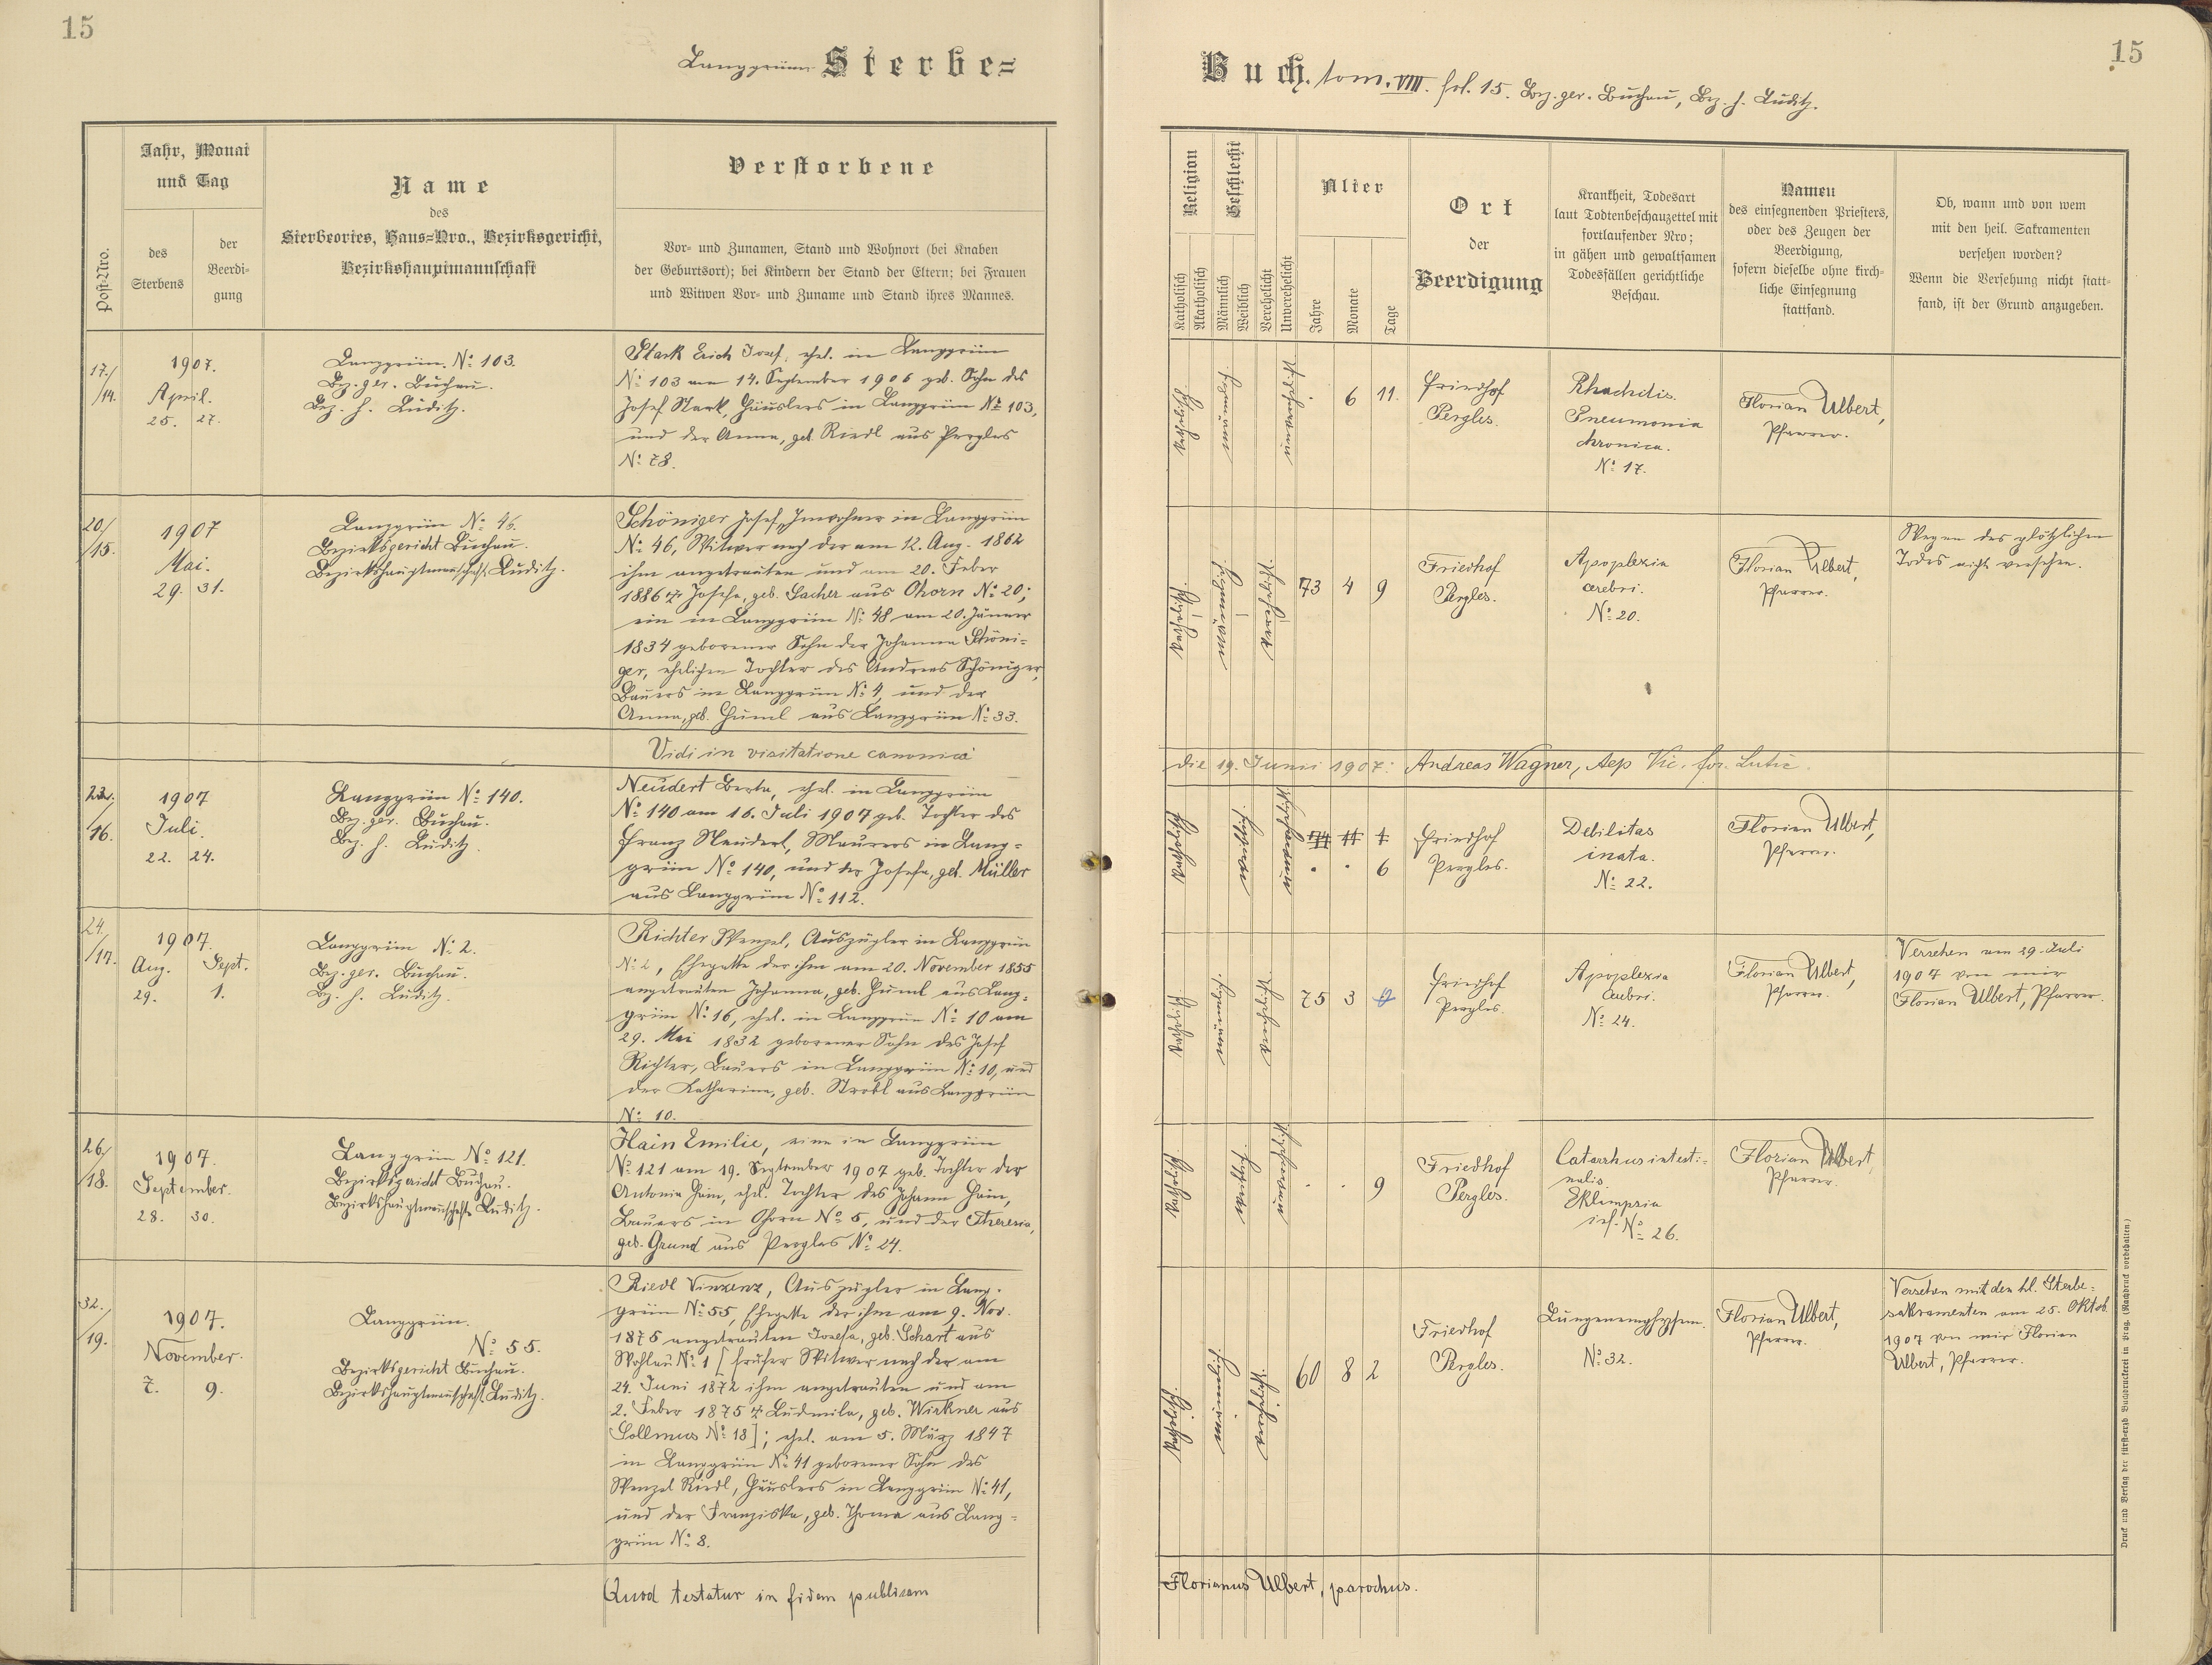 15
Langgrün Sterbe=
Jahr, Monat
und Tag
Post=Nro.
des
Sterbens
der
Beerdi=
gung
Name
des
Sterbeortes, Haus=Nro., Bezirksgericht,
Bezirkshauptmannschaft
Verstorbene
Vor= und Zunamen, Stand und Wohnort (bei Knaben
der Geburtsort); bei Kindern der Stand der Eltern; bei Frauen
und Witwen Vor= und Zuname und Stand ihres Mannes.
17./
/14.
1907.
April.
25. 27.
Langgrün. No 103.
Bez. ger. Buchau.
Bez. h. Luditz.
Stark Erich Josef, ehel. in Langgrün
No 103 am 14. September 1906 geb. Sohn des
Josef Stark, Häuslers in Langgrün No 103,
und der Anna, geb. Riedl aus Pergles
No 78.
20/
/15.
1907
Mai.
29. 31.
Langgrün No 46.
Bezirksgericht Buchau.
Bezirkshauptmannschaft Luditz.
Schöniger Josef, Inwohner in Langgrün
No 46, Witwer nach der am 12. Aug. 1862
ihm angetrauten und am 20. Feber
1886 † Josefa, geb. Lacher aus Ohorn No 20;
ein in Langgrün No 48 am 20. Jänner
1834 geborener Sohn der Johanna Schöni=
ger, ehelichen Tochter des Andreas Schöniger,
Bauers in Langgrün No 4, und der
Anna, geb. Huml aus Langgrün No 33.
Vidi in visitatione canonica
22./
/16.
1907
Juli.
22. 24.
Langgrün No 140.
Bez. ger. Buchau.
Bez. h. Luditz.
Neudert Berta, ehel. in Langgrün
No 140 am 16. Juli 1907 geb. Tochter des
Franz Neudert, Maurers in Lang=
grün No 140, und der Josefa, geb. Müller
aus Langgrün No 112.
24.
/17.
1907.
Aug. Sept.
29. 1.
Langgrün No 2.
Bez. ger. Buchau.
Bez. h. Luditz.
Richter Wenzel, Auszügler in Langgrün
No 2, Ehegatte der ihm am 20. November 1855
angetrauten Johanna, geb. Huml aus Lang=
grün No 16, ehel. in Langgrün No 10 am
29. Mai 1832 geborener Sohn des Josef
Richter, Bauers in Langgrün No 10, und
der Katharina, geb. Strobl aus Langgrün
No 10.
26/
/18.
1907.
September.
28. 30.
Langgrün No 121.
Bezirksgericht Buchau.
Bezirkshauptmannschaft Luditz.
Hain Emilie, eine in Langgrün
No 121 am 19. September 1907 geb. Tochter der
Antonia Hain, ehel. Tochter des Johann Hain,
Bauers in Ohorn No 5, und der Theresia,
geb. Grund aus Pergles No 24.
32./
/19.
1907.
November.
7. 9.
Langgrün.
No 55.
Bezirksgericht Buchau.
Bezirkshauptmannschaft Luditz.
Riedl Vinzenz, Auszügler in Lang=
grün No 55, Ehegatte der ihm am 9. Nov.
1875 angetrauten Josefa, geb. Schart aus
Wohlau No 1 [früher Witwer nach der am
24. Juni 1872 ihm angetrauten und am
2. Feber 1875 † Ludmila, geb. Wirkner aus
Sollmus No 18]; ehel. am 5. März 1847
in Langgrün No 41 geborener Sohn des
Wenzel Riedl, Häuslers in Langgrün No 41,
und der Franziska, geb. Thoma aus Lang=
grün No 8.
Quod testatur in fidem publicam
15
Buch. tom. VIII. fol. 15. Bez. ger. Buchau, Bez. h. Luditz.
Religion
Katholisch
Akatholisch
Geschlecht
Männlich
Weiblich
Verehelicht
Unverehelicht
Alter
Jahre
Monate
Tage
Ort
der
Beerdigung
Krankheit, Todesart
laut Todtenbeschauzettel mit
fortlaufender Nro;
in gähen und gewaltsamen
Todesfällen gerichtliche
Beschau.
Namen
des einsegnenden Priesters,
oder des Zeugen der
Beerdigung,
sofern dieselbe ohne kirch=
liche Einsegnung
stattfand.
Ob, wann und von wem
mit den heil. Sakramenten
versehen worden?
Wenn die Versehung nicht statt=
fand, ist der Grund anzugeben.
6 11.
Friedhof
Pergles.
Rhachitis.
Pneumonia
chronica.
No 17.
Florian Ulbert,
Pfarrer.
73 4 9
Friedhof
Pergles.
Apoplexia
cerebri.
No 20.
Florian Ulbert,
Pfarrer.
Wegen des plötzlichen
Todes nicht versehen.
die 19. Junii 1907: Andreas Wagner, Aep Vic. for. Lutic.
6
Friedhof
Pergles.
Debilitas
inata.
No 22.
Florian Ulbert,
Pfarrer.
75 3
Friedhof
Pergles.
Apoplexia
cerebri.
No 24.
Florian Ulbert,
Pfarrer.
Versehen am 29. Juli
1907 von mir
Florian Ulbert, Pfarrer.
9
Friedhof
Pergles.
Catarrhus intesti=
nalis.
Eklampsia
inf. No 26.
Florian Ulbert
Pfarrer.
60 8 2
Friedhof
Pergles.
Lungenemphysem.
No 32.
Florian Ulbert,
Pfarrer.
Versehen mit den hl. Sterbe=
sakramenten am 25. Oktob.
1907 von mir Florian
Ulbert, Pfarrer.
Florianus Ulbert, parochus.
Druck und Verlag der fürst=erzb. Buchdruckerei in Prag. (Nachdruck vorbehalten.)